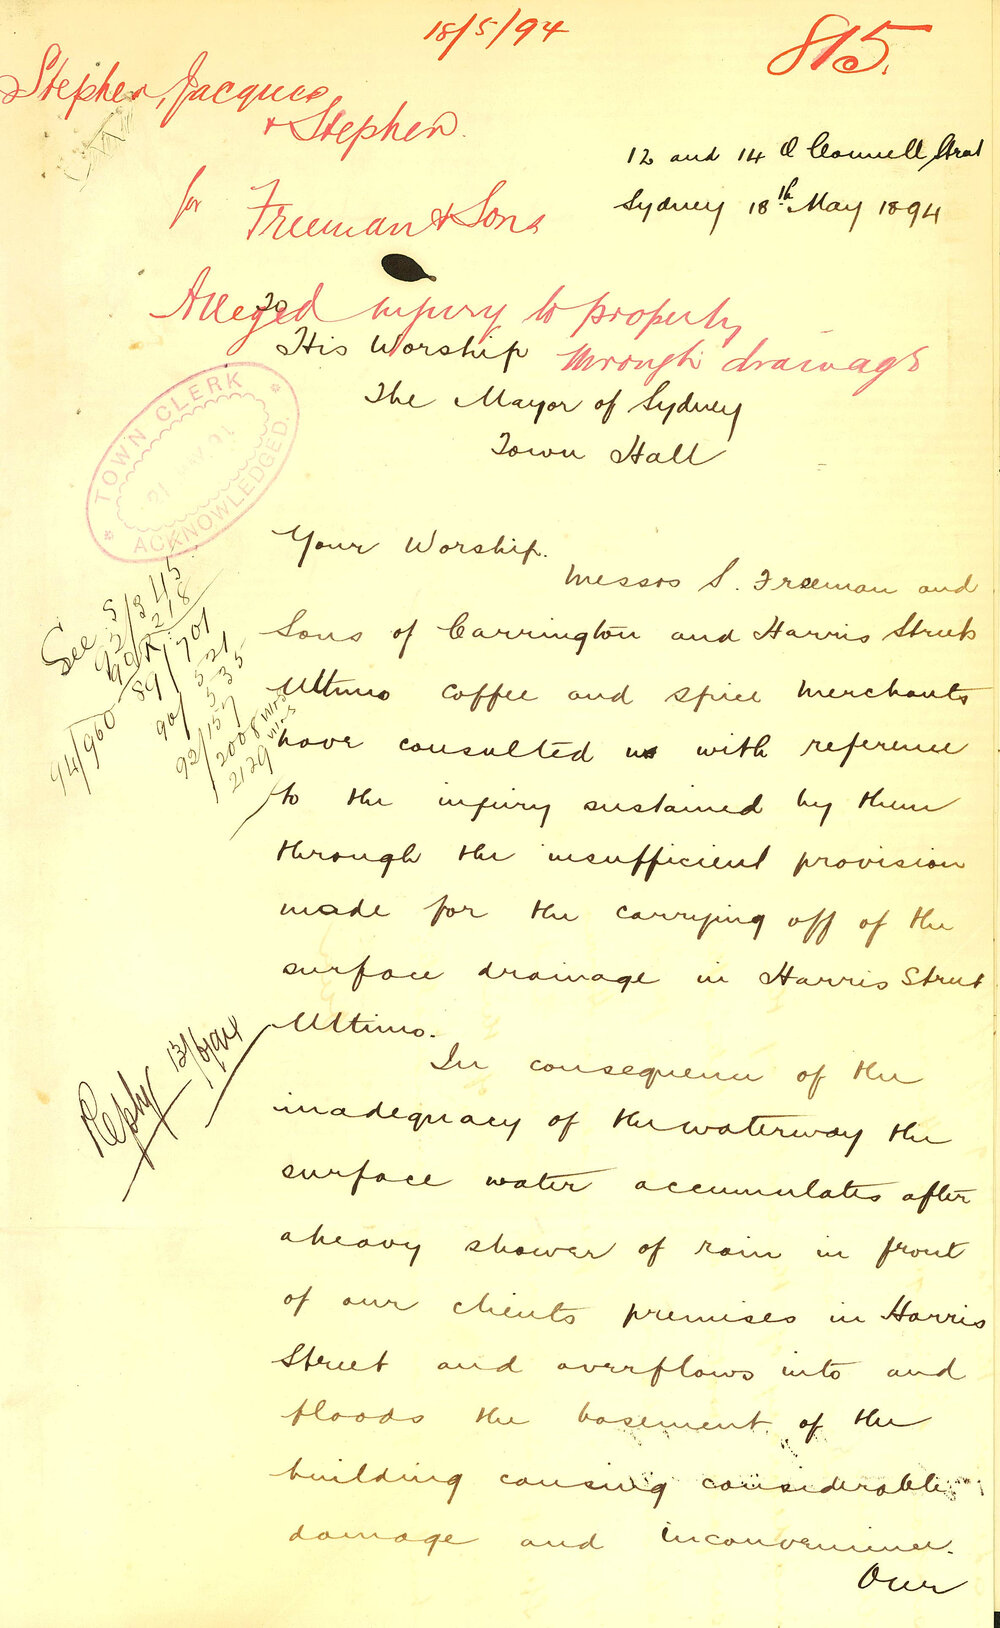 18/5/94
815.
Stephen, Jacques
& Stephen.
for Freeman & Sons
Alleged injury to property
through drainage
12 and 14 O'Connell Street
Sydney 18th May 1894
To
His Worship
The Mayor of Sydney
Town Hall
TOWN CLERK
21
91
ACKNOWLEDGED.
Your Worship.
Messrs S. Freeman and
Sons of Carrington and Harris Streets
Ultimo coffee and spice merchants
have consulted us with reference
to the injury sustained by them
through the insufficient provision
made for the carrying off of the
surface drainage in Harris Street
Ultimo.
In consequence of the
inadequacy of the waterway the
surface water accumulates after
a heavy shower of rain in front
of our clients premises in Harris
Street and overflows into and
floods the basement of the
building causing considerable
damage and inconvenience.
Our
See
89/701
90/521
535
92/157
2008
2129
94/960
Reply 13/6/94